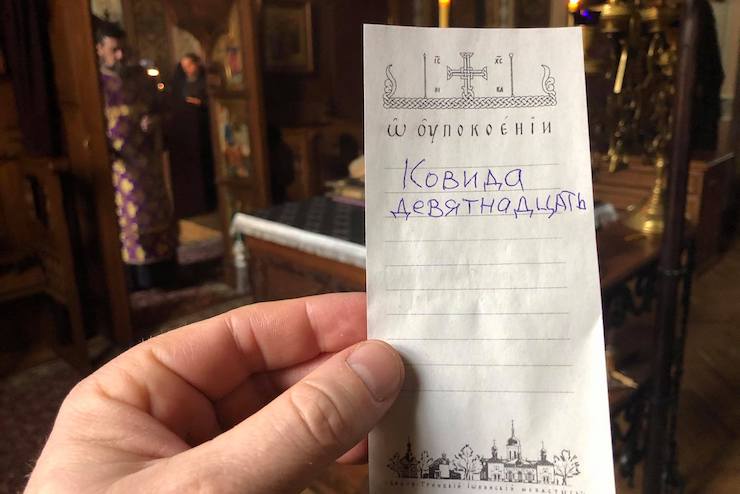 ІС ХС
НІ КА
Ѡ ОУПОКОЕ́НІИ
Ковида
девятнадцать